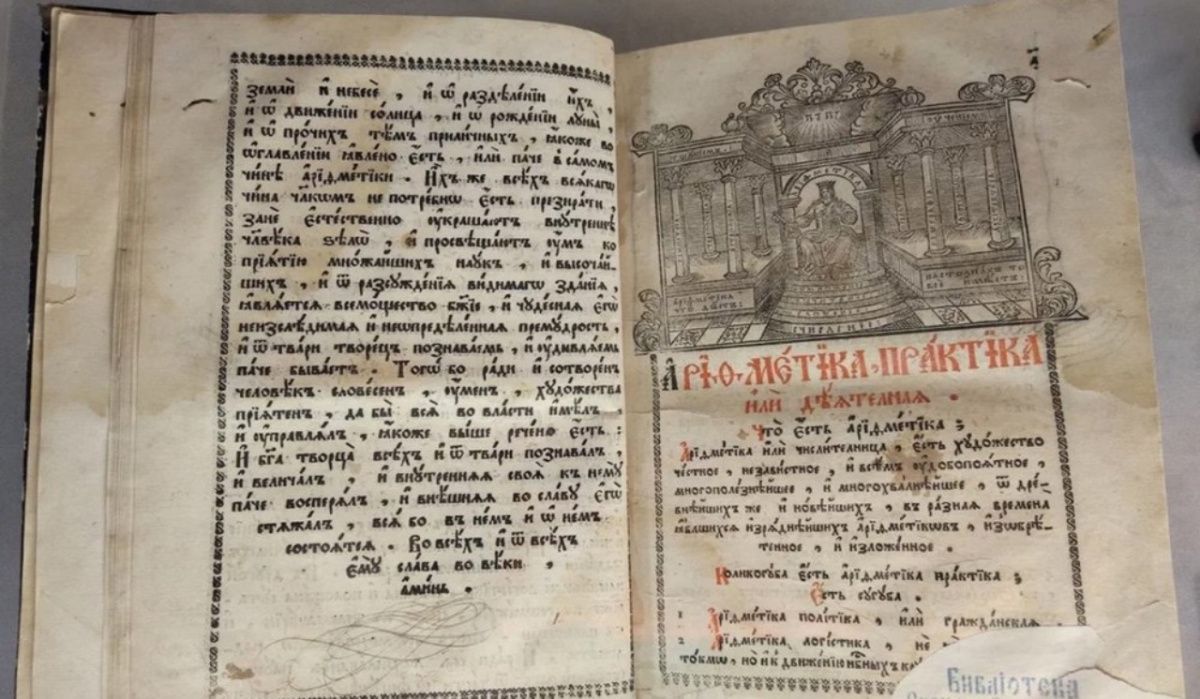 землѝ и҆ небесѐ , и҆ ѿ раздѣленїи и҆́хъ ,
и҆ ѿ движенїи со́лнца , и҆ ѿ рожденїи луны̀ ,
и҆ ѿ про́чихъ тѣмъ прили́чныхъ , ꙗ҆́коже во
ѡ҆главленїи ꙗ҆влено є҆́сть , и҆лѝ паче в̾ самомъ
чи́нѣ а҆риѳме́тїки . И҆́хъ же всѣ́хъ всѧкагѡ
чина чл҃кѡмъ не потребнѡ є҆сть презира́ти ,
занѐ є҆сте́ственнѡ ᲂу҆краша́ютъ вну́треннѣ
чл҃вѣка ѕѣлѡ̀ , и҆ просвѣща́ютъ ᲂу҆мъ ко
прїѧ́тїю множа́йшихъ нау́къ , и҆ высоча́й-
шихъ , и҆ ѿ разсужде́нїѧ ви́димагѡ зда́нїѧ ,
ꙗ҆влѧ́етсѧ всемо́щество бж҃їе , и҆ чуде́снаѧ є҆гѡ̀
неизслѣди́маѧ и҆ неѡпредѣле́ннаѧ прему́дрость ,
и҆ ѿ тва́ри творе́цъ познава́емь , и҆ ᲂу҆дивлѧ́емь
па́че быва́етъ . Тогѡ̀ бо ра́ди и҆ сотворе́нъ
человѣ́къ слове́сенъ , ᲂу҆́менъ , худо́жества
прїѧ́тенъ , да бы̀ всѧ̑ во вла́сти и҆мѣ́лъ ,
и҆ ᲂу҆правлѧ́лъ , ꙗ҆́коже вы́ше рече́но є҆́сть :
И҆ бг҃а творца̀ всѣ́хъ и҆ ѿ тва́ри познава́лъ ,
и҆ велича́лъ , и҆ вну́треннѧѧ своѧ̑ къ немꙋ̀
па́че восперѧ́лъ , и҆ внѣ́шнѧѧ во сла́ву є҆гѡ̀
стѧжа́лъ , всѧ̑ бо въ не́мъ и҆ ѡ҆ не́мъ
состоѧ́тсѧ . Во всѣ́хъ и҆ ѿ всѣ́хъ
є҆мꙋ̀ сла́ва во вѣ́ки ,
а҆ми́нь .
а҃
А҆РИѲМЕ́ТЇКА
а҆риѳме́тїка
что дѣетъ :
счисле́нїе
А҆РИ́Ѳ МЕ́ТЇКА ПРА́КТЇКА
и҆лѝ дѣ́ѧтелнаѧ .
Что̀ є҆́сть а҆риѳме́тїка ;
А҆риѳме́тїка и҆лѝ числи́телница , є҆́сть худо́жество
че́стное , незави́стное , и҆ всѣ̑мъ ᲂу҆добопоѧ́тное ,
многополе́знѣйшее , и҆ многохва́лнѣйшее , ѿ дре́в-
нѣйшихъ же и҆ новѣ́йшихъ , въ ра̑знаѧ времена̀
ꙗ҆́вльшихсѧ и҆зрѧ́днѣйшихъ а҆риѳме́тїкѡвъ , и҆зѡбрѣ́-
тенное , и҆ и҆зло́женное .
Коликогу́ба є҆́сть а҆риѳме́тїка пра́ктїка ;
Є҆́сть сугу́ба .
1 А҆риѳме́тїка поли́тїка , и҆лѝ гражда́нскаѧ
2 А҆риѳме́тїка логі́стика , не
то́кмѡ , но и҆ к̾ движе́нїю нб҃ныхъ кру
Библіотека